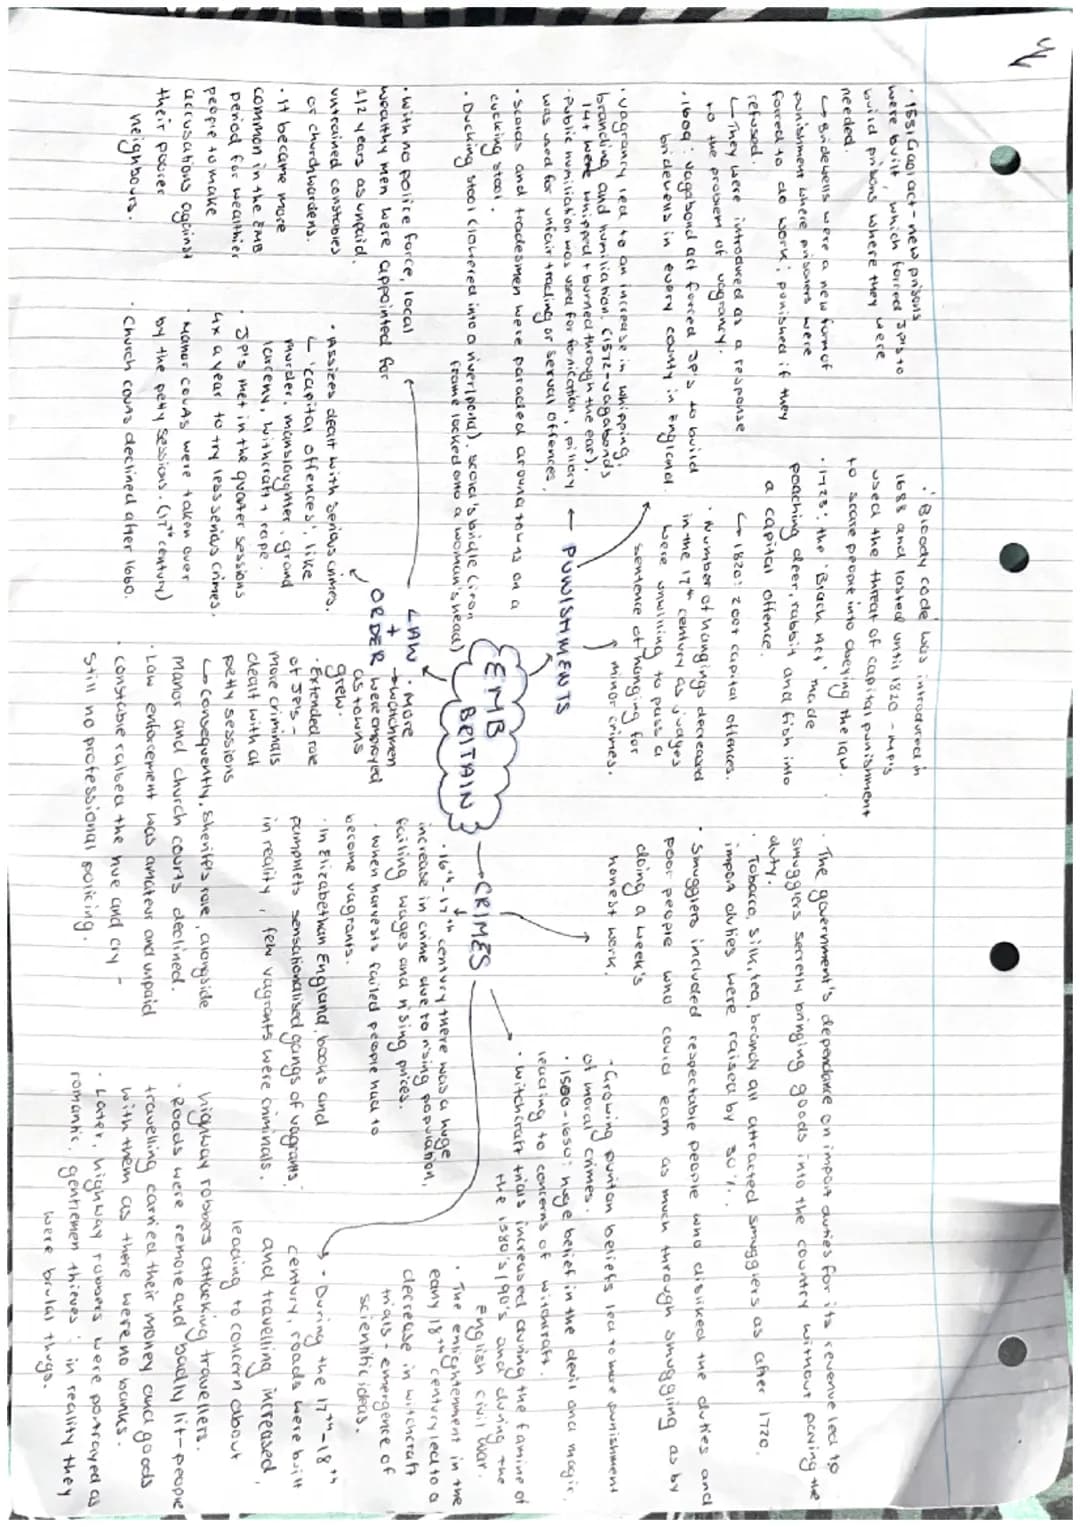 · 1531 Gaol act - new prisons
were built, which forced JP's to
build prisons where they were
needed.
↳ Bidewells were a new form of
punishment where prisoners were
forced to do work; punished if they
refused.
↳ They were introduced as a response
to the problem of vagrancy.
· 1609: vagabond act forced JP's to build
bridewells in every county in England.
· vagrancy led to an increase in whipping,
branding and humiliation. (1572 - vagabonds
14+ were whipped + burned through the ear).
· Public humiliation was used for fornication, pillory
was used for unfair trading or sexual offences,
· Scolds and tradesmen were paraded around towns on a
cucking stool.
· Ducking stool (lowered into a river/pond). scold's bridle (iron
frame locked onto a woman's head)
· 'Bloody code' was introduced in
1688 and lasted until 1820 - MP's
used the threat of capital punishment
to scare people into obeying the law.
· 1723: the 'Black Act' made
poaching deer, rabbit and fish into
a capital offence.
↳ 1820: 200+ capital offences.
· Number of hangings decreased
in the 17th century as judges
were unwilling to pass a
sentence of hanging for
minor crimes.
PUNISHMENTS
EMB
BRITAIN
LAW
+
ORDER
· with no police force, local
wealthy men were appointed for
1/2 years as unpaid,
untrained constables
or churchwardens.
· It became more
common in the EMB
period for wealthier
people to make
accusations against
their poorer
neighbours.
· Assizes dealt with serious crimes.
↳ 'capital offences', like
murder, manslaughter, grand
larceny, witchcraft + rape.
· JP's met in the quarter sessions
4x a year to try less serious crimes.
· Manor courts were taken over
by the petty sessions. (17th century)
· Church courts declined after 1660.
· more
watchmen
were employed
as towns
grew.
· Extended role
of JP's -
more criminals
dealt with at
petty sessions
↳ Consequently, sheriffs role, alongside
manor and church courts declined.
· Law enforcement was amateur and unpaid
· constable raised the hue and cry -
still no professional policing.
CRIMES
· The government's dependance on import duties for its revenue led to
smugglers secretly bringing goods into the country without paying the
duty.
· Tobacco, silk, tea, brandy all attracted smugglers as after 1720,
import duties were raised by 30%.
· Smugglers included respectable people who disliked the duties and
poor people who could earn as much through smuggling as by
doing a week's
honest work.
· Growing puritan beliefs led to more punishment
of moral crimes.
· 1500-1650: huge belief in the devil and magic,
leading to concerns of witchcraft.
· witchcraft trials increased during the famine of
the 1580's/90's and during the
english civil war.
· The enlightenment in the
early 18th century led to a
decrease in witchcraft
trials - emergence of
scientific ideas.
· 16th - 17th century there was a huge
increase in crime due to rising population,
falling wages and rising prices.
· when harvests failed people had to
become vagrants.
· In Elizabethan England, books and
pamphlets sensationalised gangs of vagrants;
in reality, few vagrants were criminals.
· During the 17th-18th
century, roads were built
and travelling increased,
leading to concern about
highway robbers attacking travellers.
· Roads were remote and badly lit - people
travelling carried their money and goods
with them as there were no banks.
· Later, highway robbers were portrayed as
romantic, gentlemen thieves; in reality they
were brutal thugs.